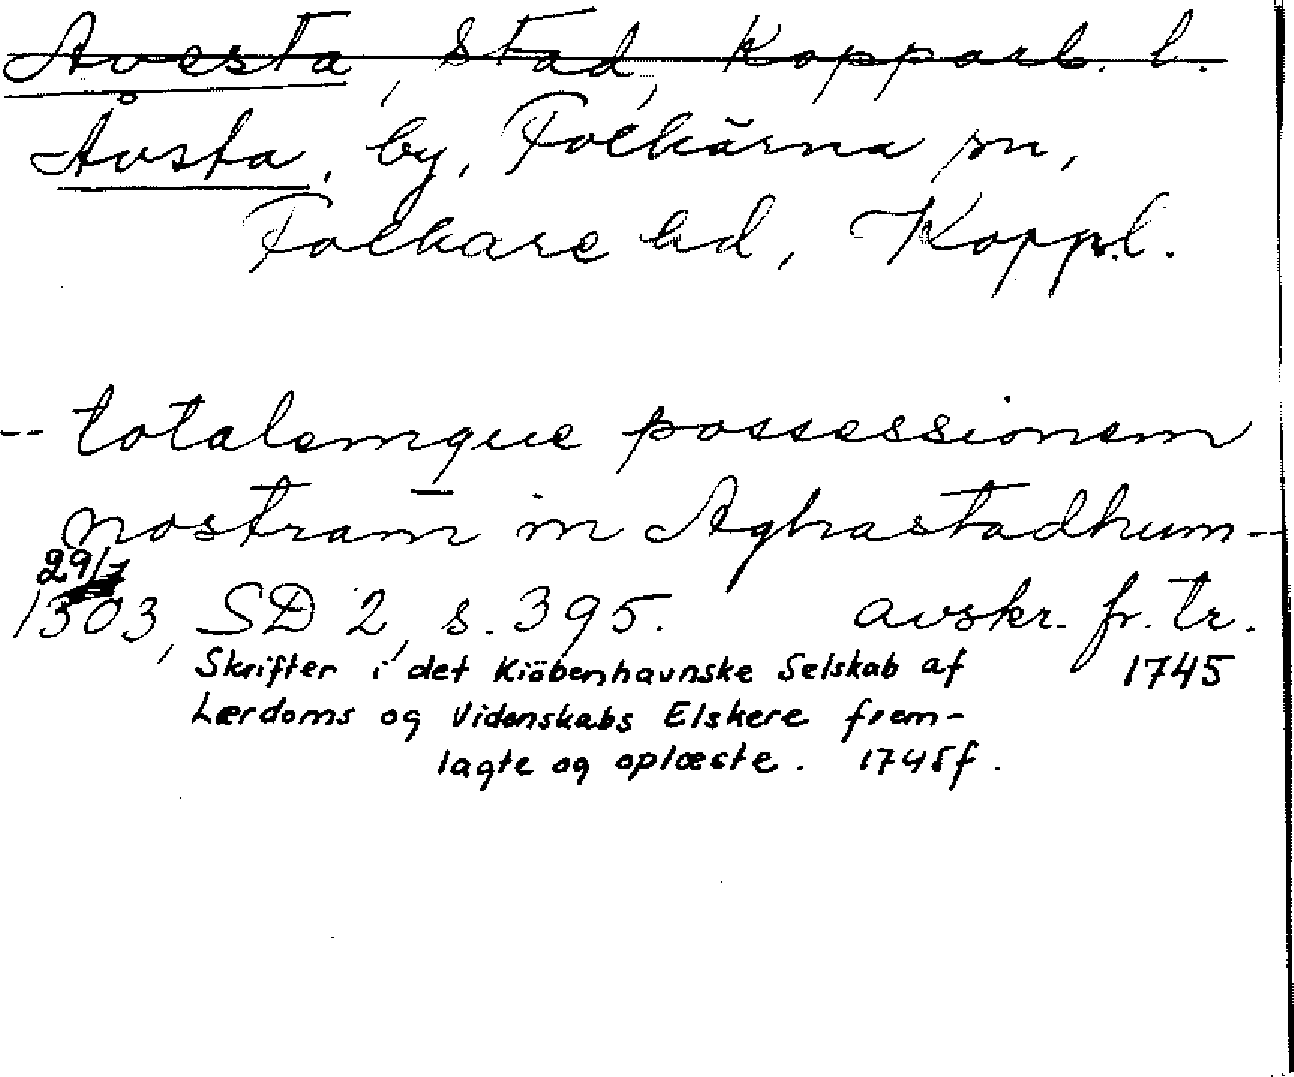 Avesta, stad, Kopparb. l.
Åvsta, by, Folkärna sn,
Folkare hd, Koppl.
-- totalemque possessionem
nostram in Aghastadhum --
29/7
1303, SD 2, s. 395. avskr. fr. tr.
Skrifter i det Kiöbenhavnske Selskab af 1745
Lærdoms og Videnskabs Elskere frem-
lagte og oplæste. 1745f.